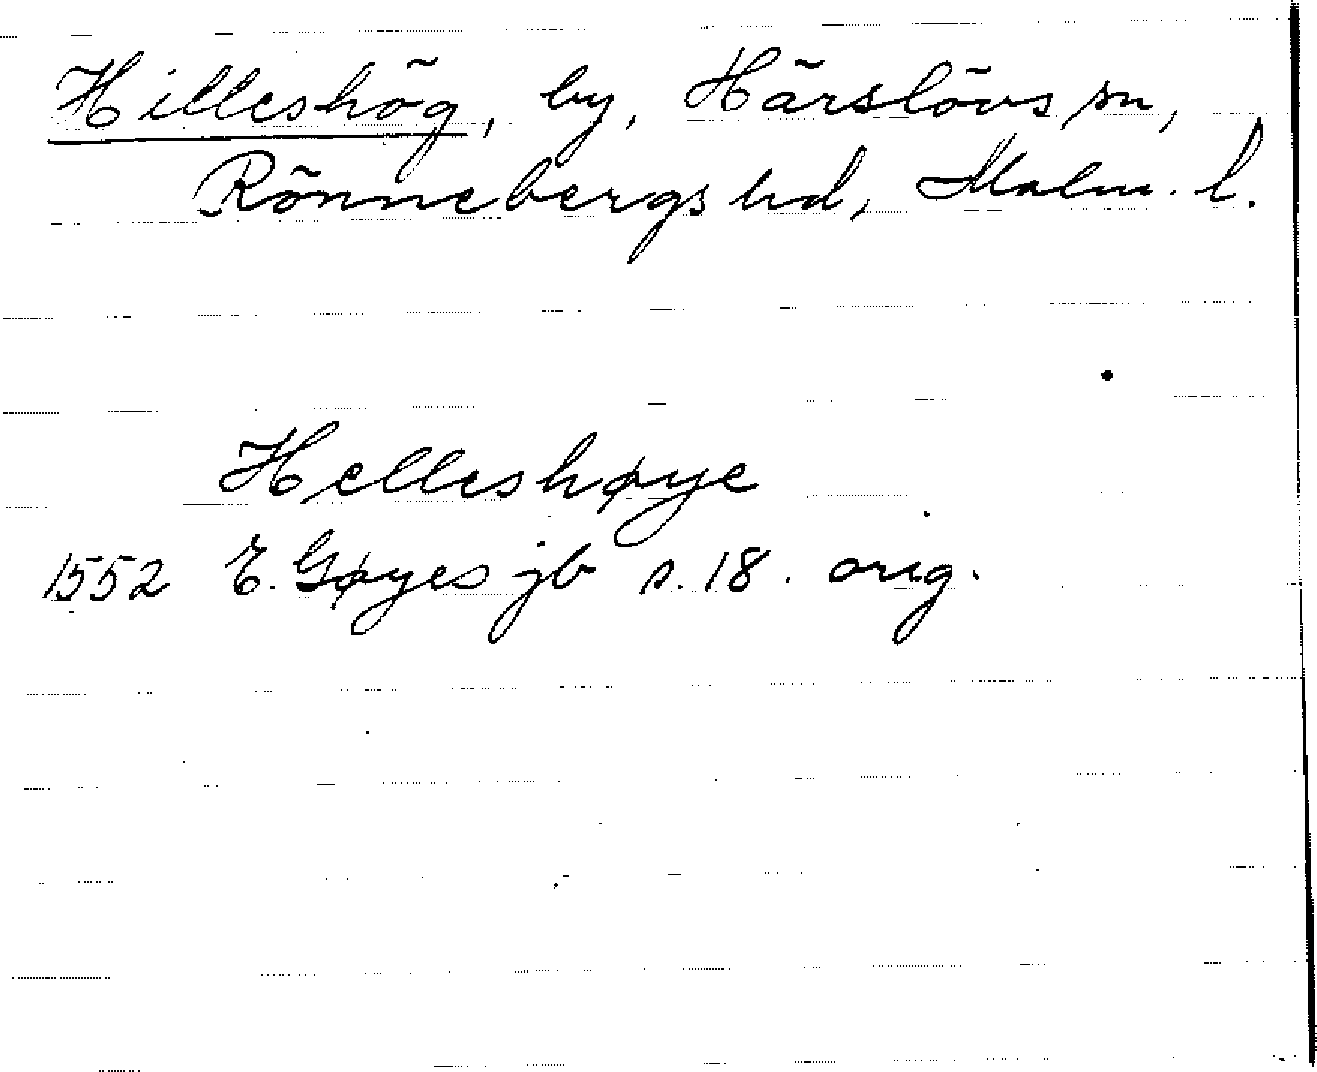 Hilleshög, by, Härslövs sn,
Rönnebergs hd, Malm. l.
Helleshøye
1552 E. Gøyes jb s. 18. orig.